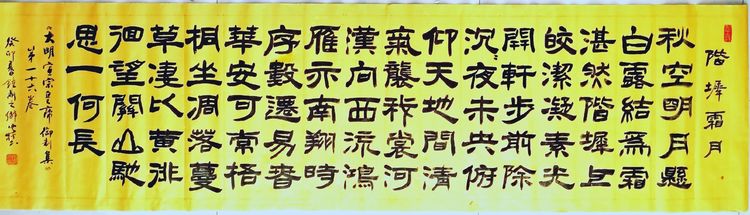 階墀霜月
秋空明月懸
白露結為霜
湛然階墀上
皎潔凝素光
開軒步前除
沉〻夜未央俯
仰天地間清
氣襲衿裳河
漢向西流鴻
雁亦南翔時
序數遷易春
華安可常梧
桐坐凋落蔓
草凄以黃徘
徊望關山馳
思一何長
《大明宣宗皇帝御制集》
第一十六卷
癸卯春